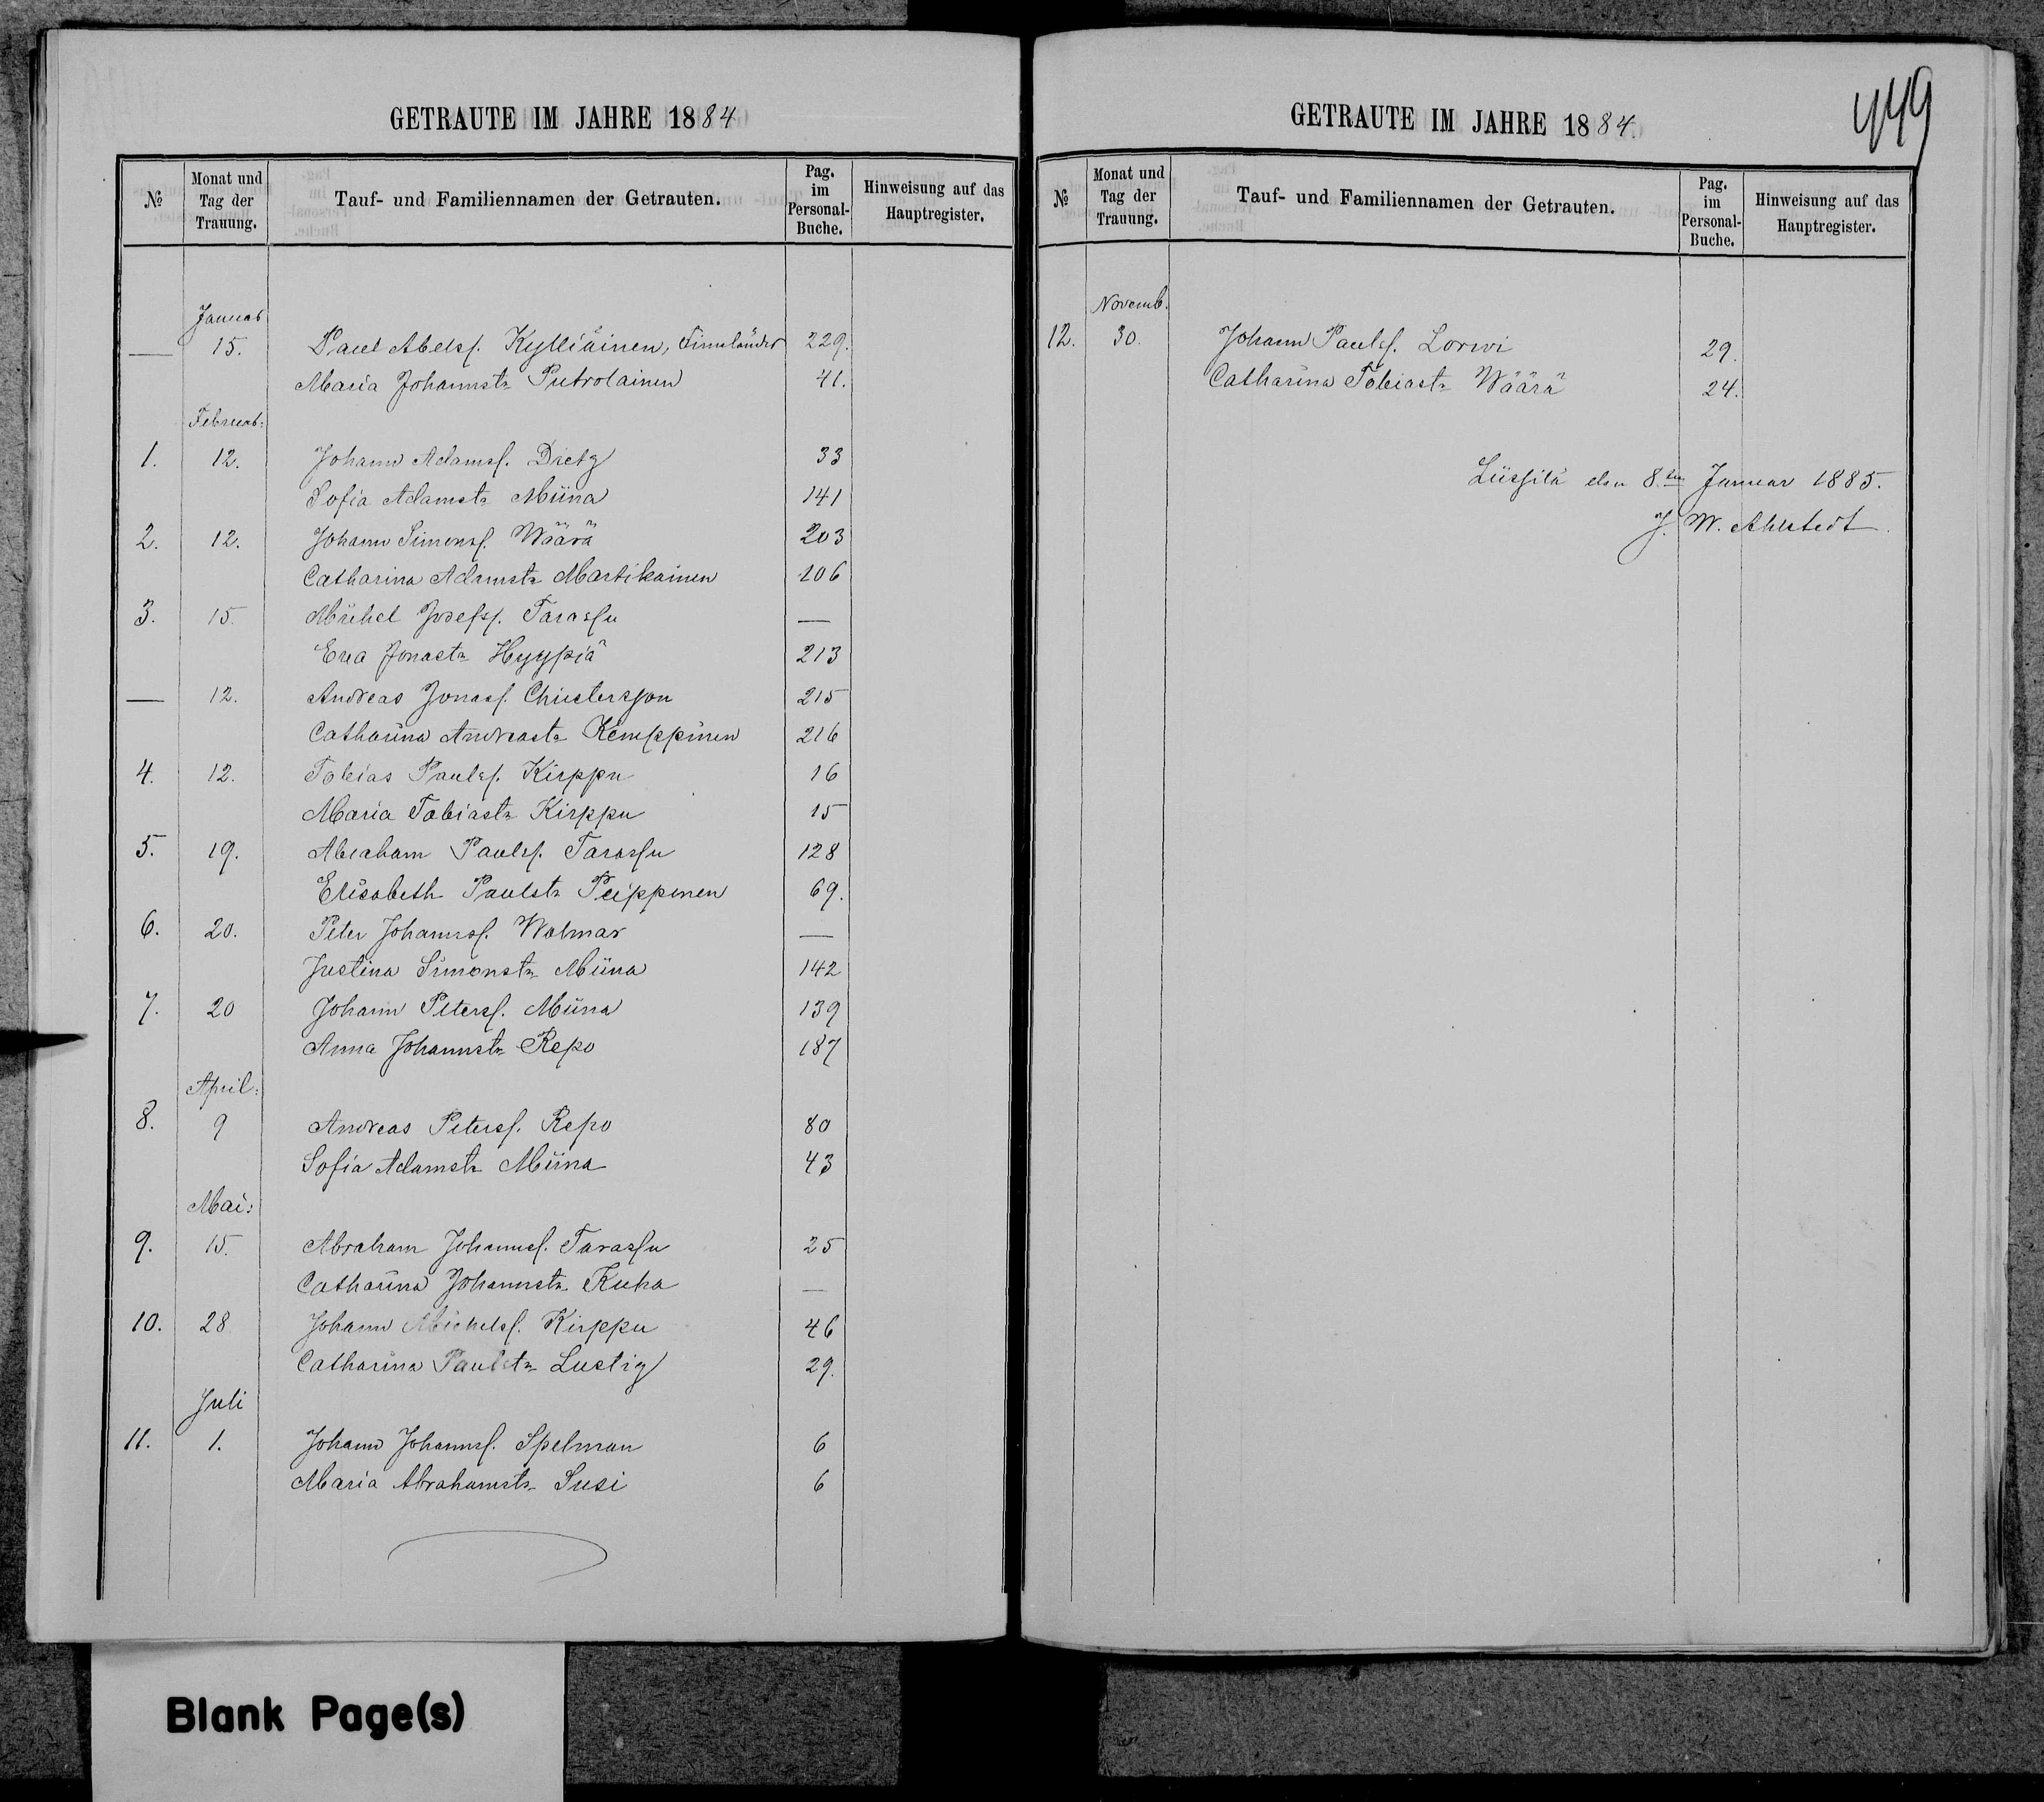 GETRAUTE IM JAHRE 1884
№ Monat und Tag der Trauung. Tauf- und Familiennamen der Getrauten. Pag. im Personal-Buche. Hinweisung auf das Hauptregister.
Januar
— 15. Paul Abelsf. Kylliäinen, Finnländer 229.
Maria Johannstr Putrolainen 41.
Februar:
1. 12. Johann Adamsf. Dietz 33
Sofia Adamstr Miina 141
2. 12. Johann Simonsf. Wäärä 203
Catharina Adamstr Martikainen 106
3. 15. Michel Josefsf. Tarassu —
Eva Jonastr Hyypiä 213
— 12. Andreas Jonasf. Christersson 215
Catharina Andreastr Kemppinen 216
4. 12. Tobias Paulsf. Kirppu 16
Maria Tobiastr Kirppu 15
5. 19. Abraham Paulsf. Tarassu 128
Elisabeth Paulstr Peipponen 69.
6. 20. Peter Johannsf. Wolmar —
Justina Simonstr Miina 142
7. 20 Johann Petersf. Miina 139
Anna Johannstr Repo 187
April:
8. 9 Andreas Petersf. Repo 80
Sofia Adamstr Miina 43
Mai:
9. 15. Abraham Johannsf. Tarassu 25
Catharina Johannstr Kuha —
10. 28 Johann Michelsf. Kirppu 46
Catharina Paulstr Lustig 29.
Juli
11. 1. Johann Johannsf. Spelman 6
Maria Abrahamstr Susi 6
GETRAUTE IM JAHRE 1884.
449
№ Monat und Tag der Trauung. Tauf- und Familiennamen der Getrauten. Pag. im Personal-Buche. Hinweisung auf das Hauptregister.
Novemb.
12. 30. Johann Paulsf. Lorwi 29.
Catharina Tobiastr Wäärä 24.
Lüssilä den 8.ten Januar 1885.
J. W. Ahlstedt.
Blank Page(s)